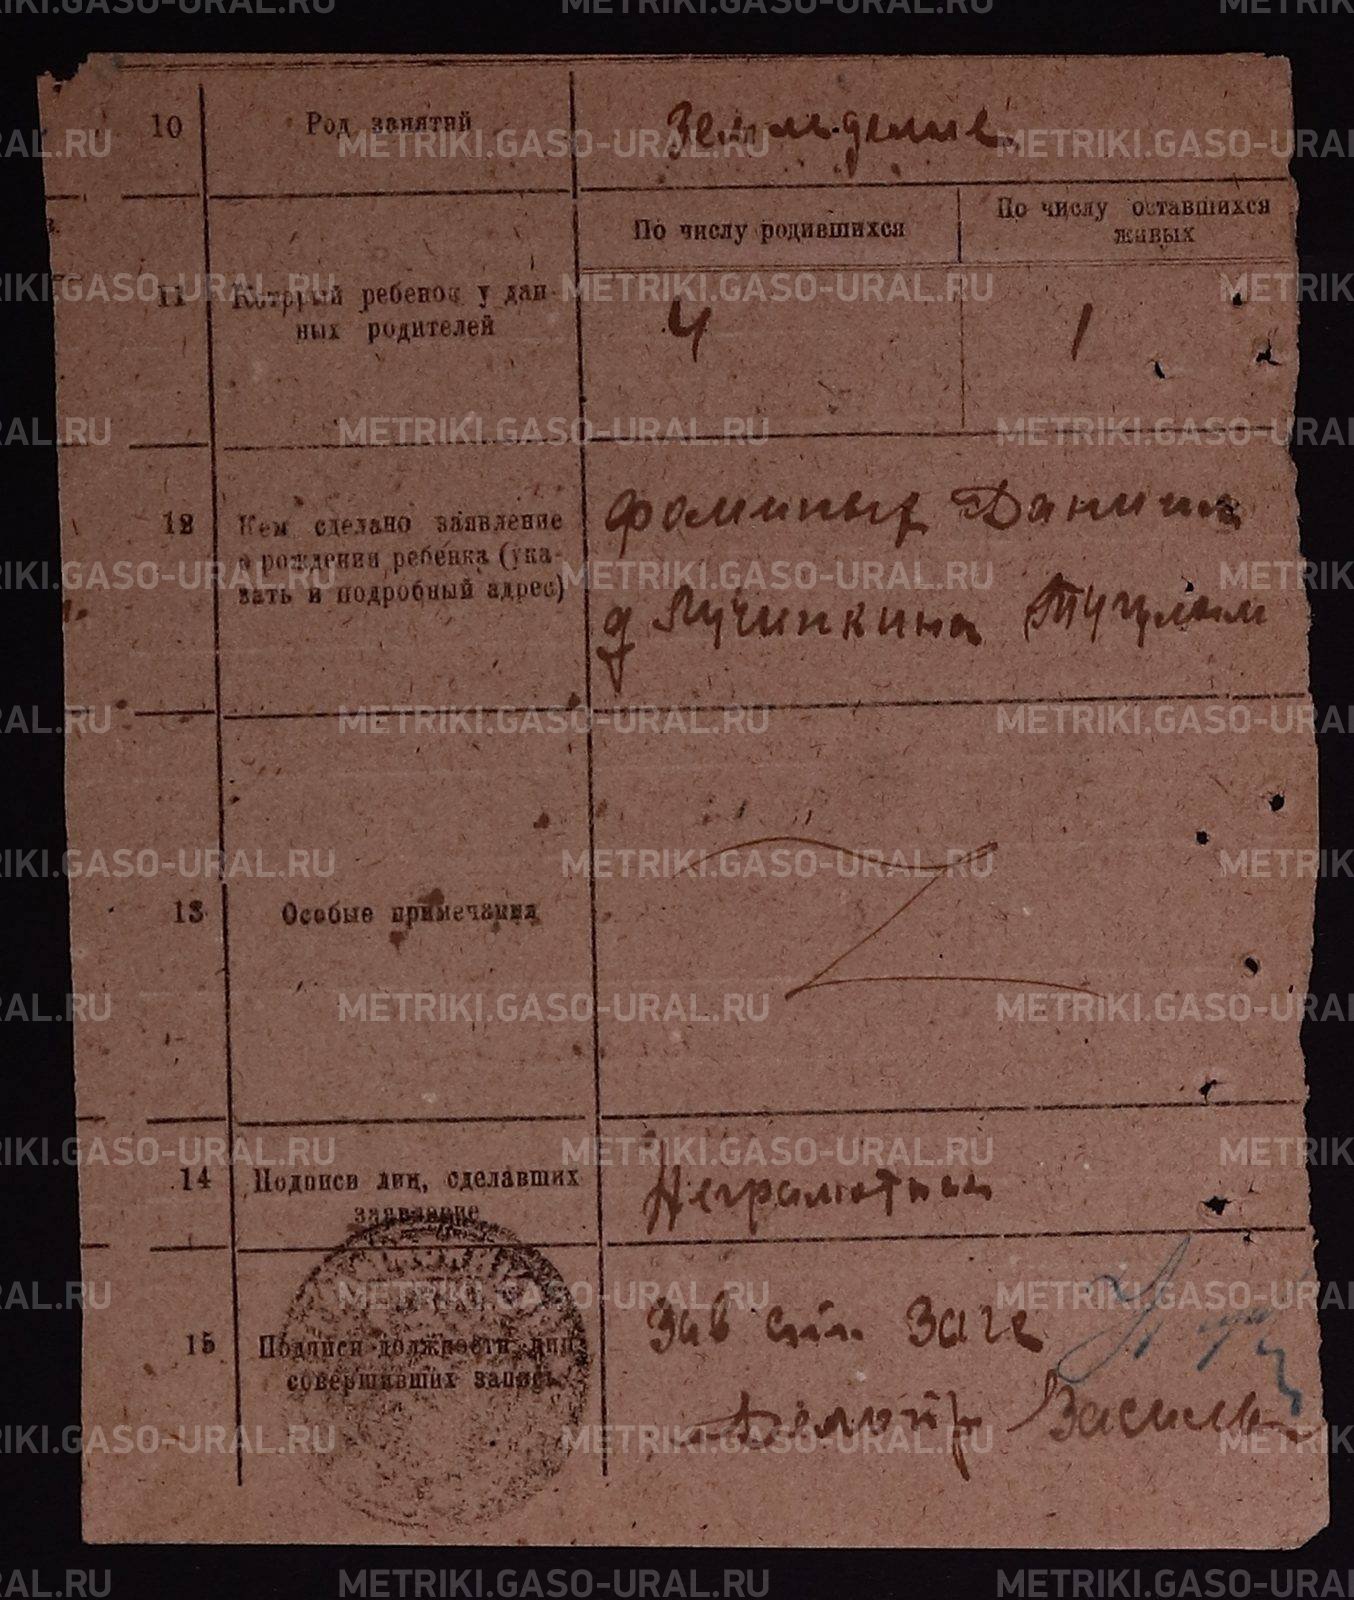 10 Род занятий Земледелие
По числу родившихся По числу оставшихся
живых
11 Который ребенок у дан-
ных родителей 4 1
12 Кем сделано заявление Фоминых Данил
о рождении ребенка (ука-
зать и подробный адрес) д Лучинкина Тугулым
13 Особые примечания Z
14 Подписи лиц, сделавших
заявление Неграмотная
15 Подписи должностн. лиц, Зав ст. Загс
совершивших запись Делопр
METRIKI.GASO-URAL.RU